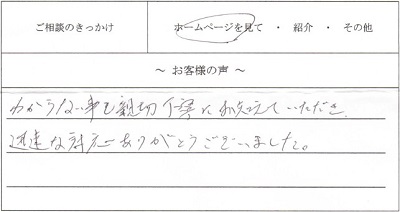 ご相談のきっかけ
ホームページを見て ・ 紹介 ・ その他
～ お客様の声 ～
わからない事も親切丁寧にお伝えていただき、
迅速な対応ありがとうございました。